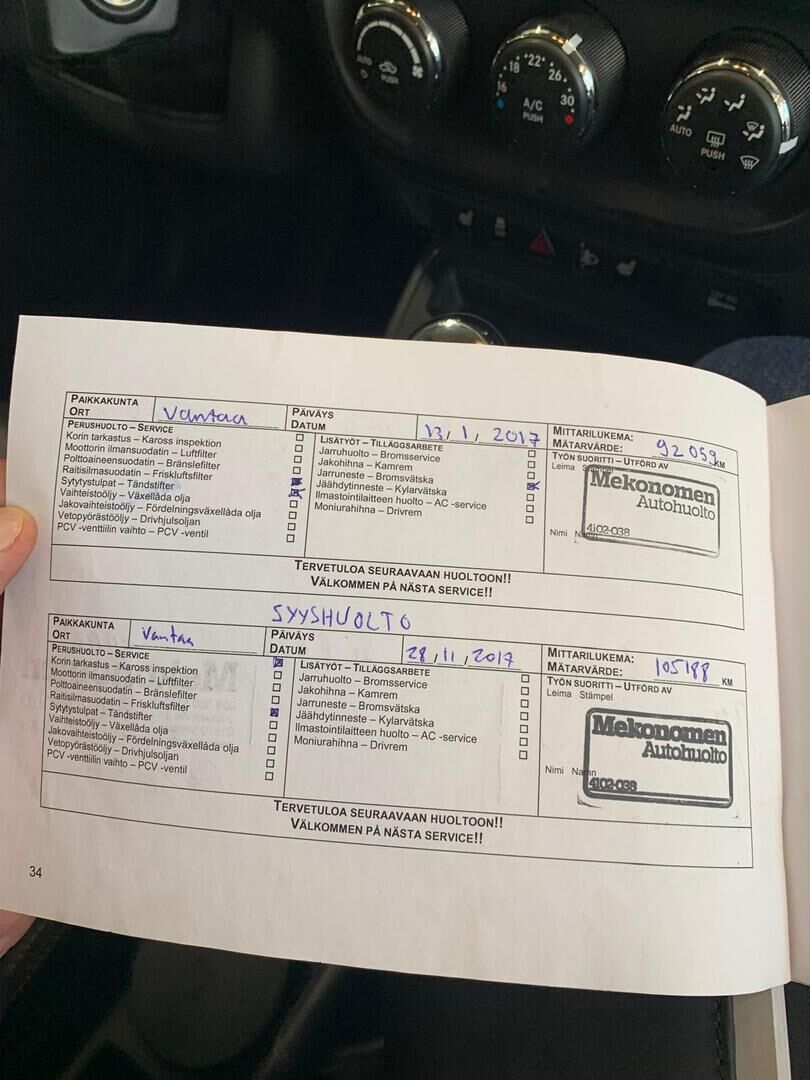 AUTO
PUSH
16
18
22
26
30
A/C
PUSH
AUTO
PUSH
PAIKKAKUNTA
ORT
Vantaa
PÄIVÄYS
DATUM
13, 1, 2017
MITTARILUKEMA:
MÄTARVÄRDE:
92 059 KM
PERUSHUOLTO – SERVICE
Korin tarkastus – Kaross inspektion
Moottorin ilmansuodatin – Luftfilter
Polttoaineensuodatin – Bränslefilter
Raitisilmasuodatin – Friskluftsfilter
Sytytystulpat – Tändstifter
Vaihteistoöljy – Växellåda olja
Jakovaihteistoöljy – Fördelningsväxellåda olja
Vetopyörästööljy – Drivhjulsoljan
PCV -venttiilin vaihto – PCV -ventil
LISÄTYÖT – TILLÄGGSARBETE
Jarruhuolto – Bromsservice
Jakohihna – Kamrem
Jarruneste – Bromsvätska
Jäähdytinneste – Kylarvätska
Ilmastointilaitteen huolto – AC -service
Moniurahihna – Drivrem
TYÖN SUORITTI – UTFÖRD AV
Leima Stämpel
Mekonomen
Autohuolto
4102-038
Nimi Namn
TERVETULOA SEURAAVAAN HUOLTOON!!
VÄLKOMMEN PÅ NÄSTA SERVICE!!
SYYSHUOLTO
PAIKKAKUNTA
ORT
Vantaa
PÄIVÄYS
DATUM
28, 11, 2017
MITTARILUKEMA:
MÄTARVÄRDE:
105188 KM
PERUSHUOLTO – SERVICE
Korin tarkastus – Kaross inspektion
Moottorin ilmansuodatin – Luftfilter
Polttoaineensuodatin – Bränslefilter
Raitisilmasuodatin – Friskluftsfilter
Sytytystulpat – Tändstifter
Vaihteistoöljy – Växellåda olja
Jakovaihteistoöljy – Fördelningsväxellåda olja
Vetopyörästööljy – Drivhjulsoljan
PCV -venttiilin vaihto – PCV -ventil
LISÄTYÖT – TILLÄGGSARBETE
Jarruhuolto – Bromsservice
Jakohihna – Kamrem
Jarruneste – Bromsvätska
Jäähdytinneste – Kylarvätska
Ilmastointilaitteen huolto – AC -service
Moniurahihna – Drivrem
TYÖN SUORITTI – UTFÖRD AV
Leima Stämpel
Mekonomen
Autohuolto
Nimi Namn
4102-038
TERVETULOA SEURAAVAAN HUOLTOON!!
VÄLKOMMEN PÅ NÄSTA SERVICE!!
34